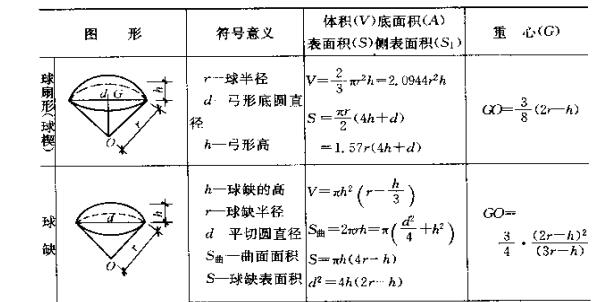 图 形 符号意义 体积(V)底面积(A) 重 心(G)
表面积(S)侧表面积(S₁)
球扇形(球楔)
d G h
O r
r—球半径
d 弓形底圆直
径
h—弓形高
V=2/3πr²h=2.0944r²h
S=πr/2(4h+d)
=1.57r(4h+d)
GO=3/8(2r-h)
球缺
d h
O r
h—球缺的高
r—球缺半径
d 平切圆直径
S曲—曲面面积
S—球缺表面积
V=πh²(r-h/3)
S曲=2πrh=π(d²/4+h²)
S=πh(4r-h)
d²=4h(2r-h)
GO=
3/4·(2r-h)²/(3r-h)